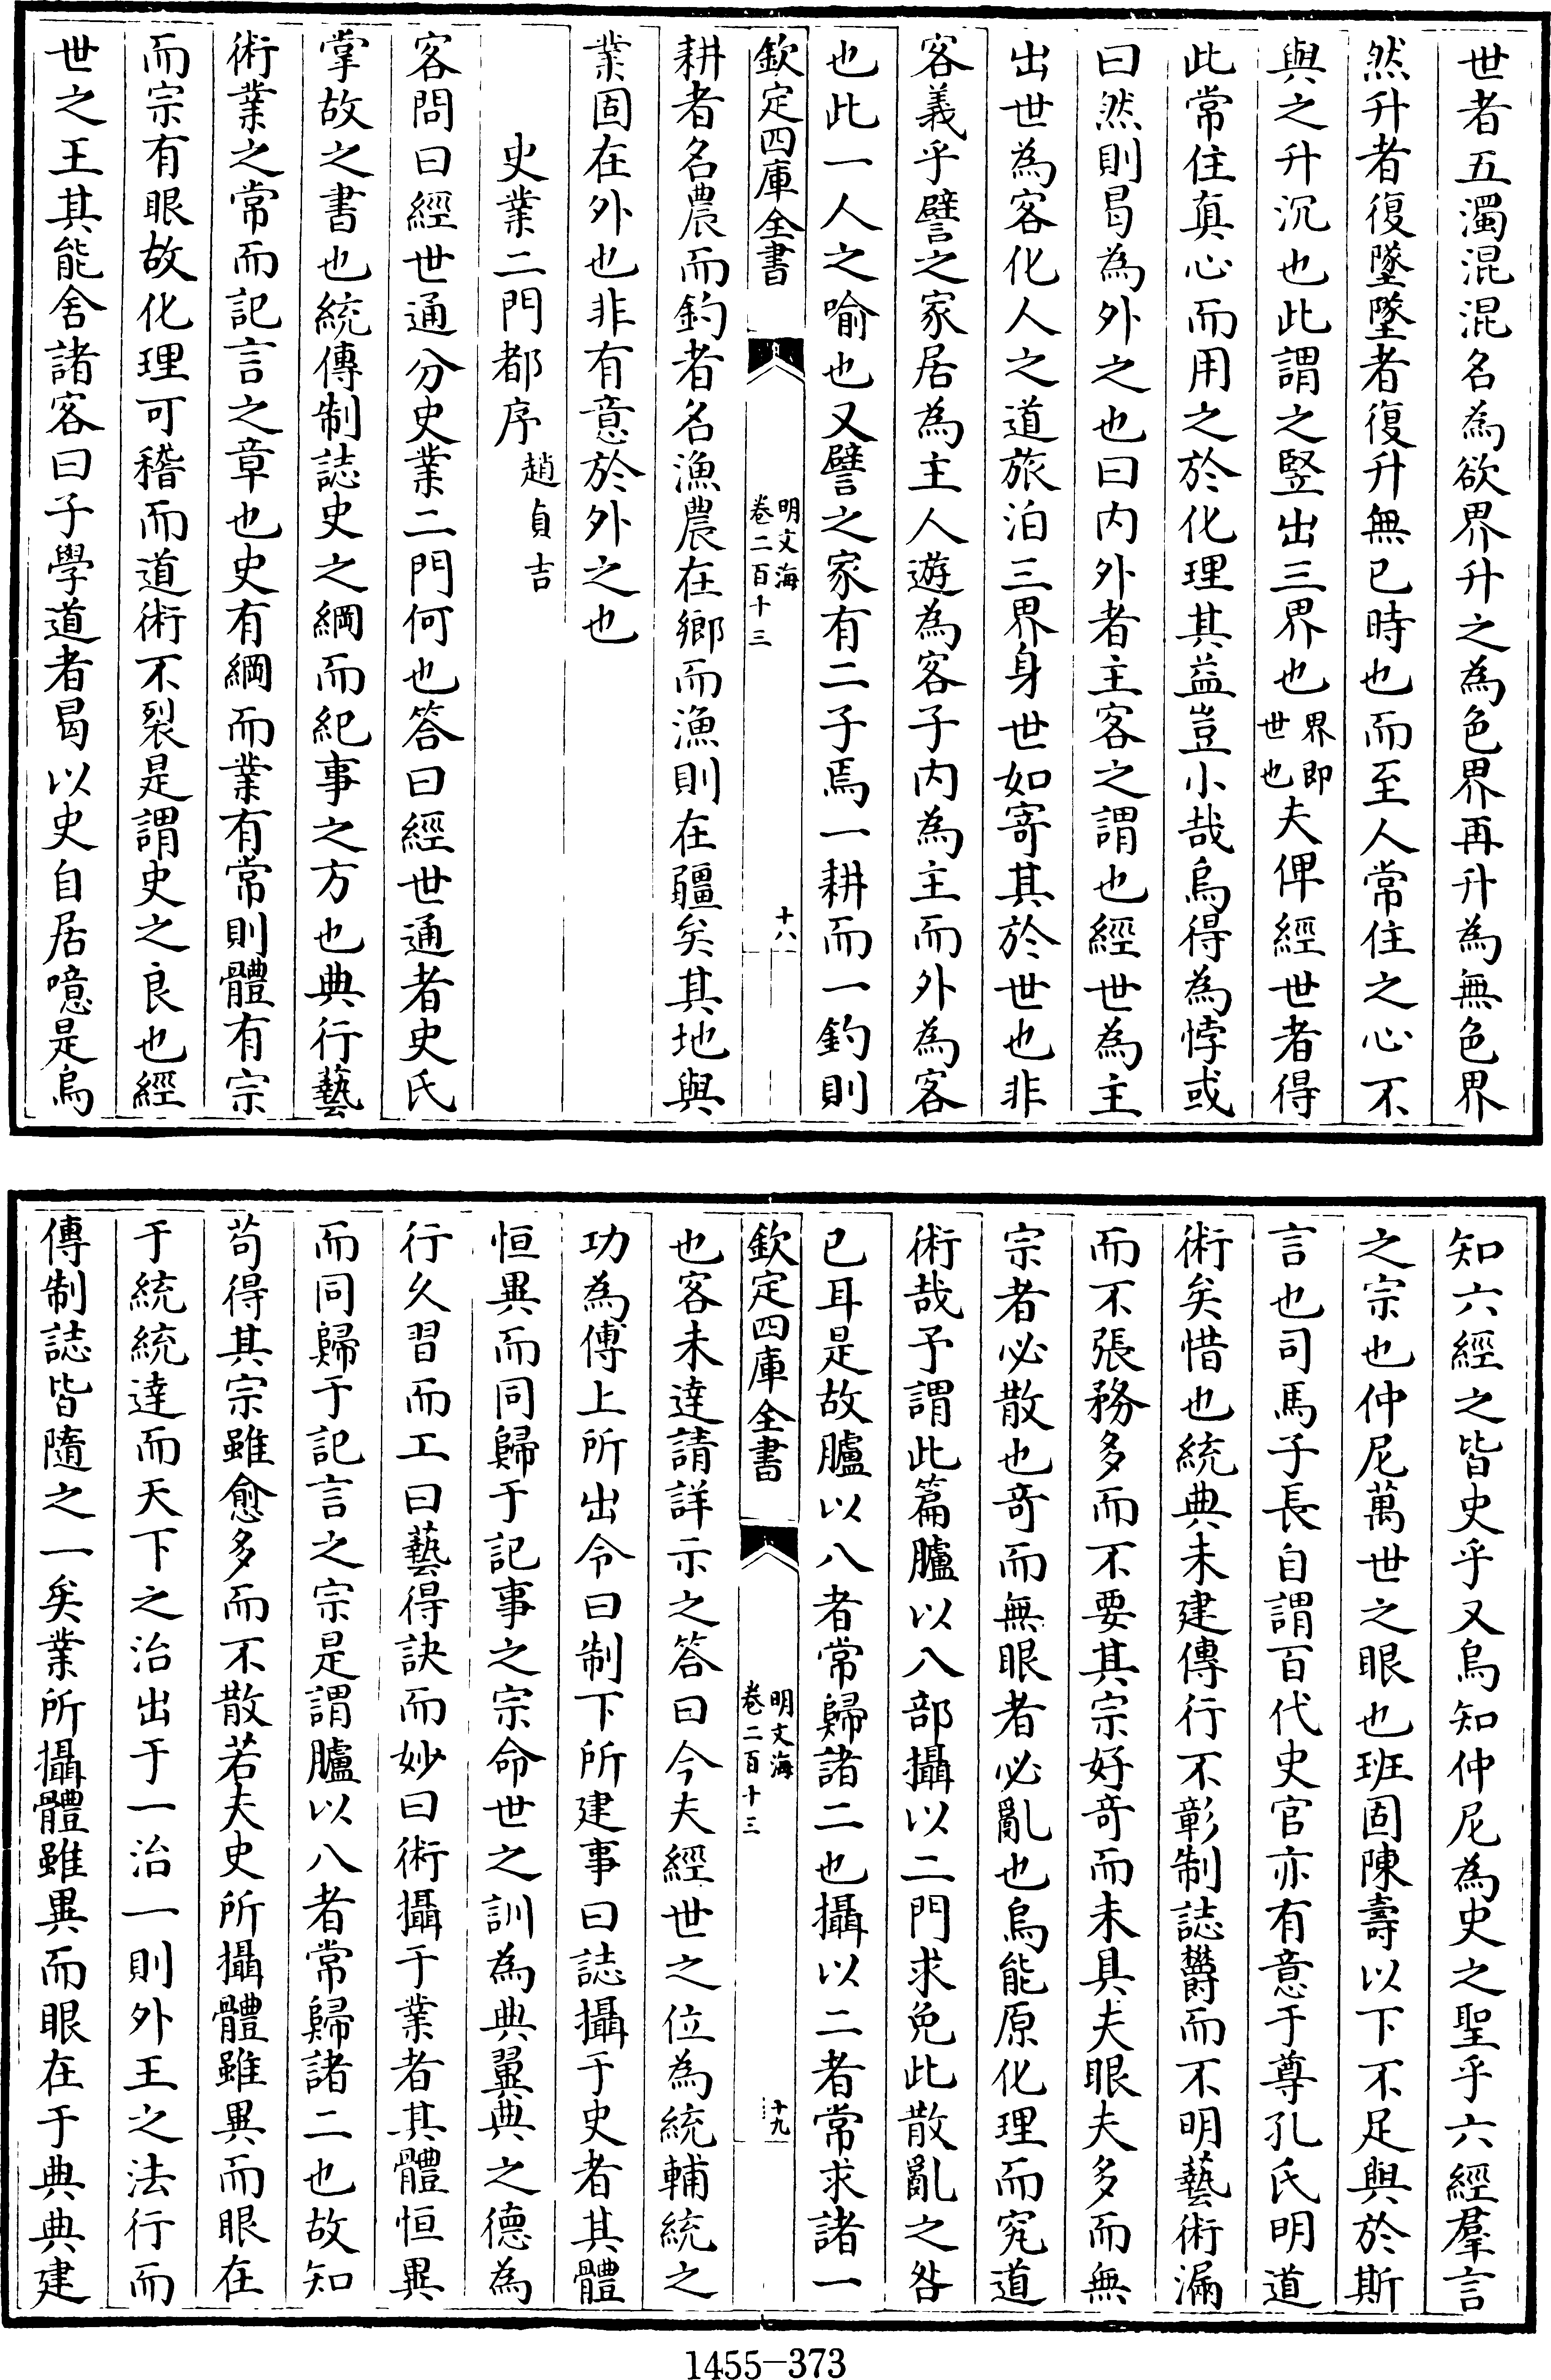 世者五濁混混名為欲界升之為色界再升為無色界
然升者復墜墜者復升無已時也而至人常住之心不
與之升沉也此謂之竪出三界也界即世也夫俾經世者得
此常住真心而用之於化理其益豈小哉烏得為悖或
曰然則曷為外之也曰内外者主客之謂也經世為主
出世為客化人之道旅泊三界身世如寄其於世也非
客義乎譬之家居為主人遊為客子内為主而外為客
也此一人之喻也又譬之家有二子焉一耕而一釣則
欽定四庫全書 明文海 卷二百十三 十八
耕者名農而釣者名漁農在鄉而漁則在疆矣其地與
業固在外也非有意於外之也
史業二門都序 趙貞吉
客問曰經世通分史業二門何也答曰經世通者史氏
掌故之書也統傳制誌史之綱而紀事之方也典行藝
術業之常而記言之章也史有綱而業有常則體有宗
而宗有眼故化理可稽而道術不裂是謂史之良也經
世之王其能舍諸客曰子學道者曷以史自居噫是烏
知六經之皆史乎又烏知仲尼為史之聖乎六經羣言
之宗也仲尼萬世之眼也班固陳壽以下不足與於斯
言也司馬子長自謂百代史官亦有意于尊孔氏明道
術矣惜也統典未建傳行不彰制誌欝而不明藝術漏
而不張務多而不要其宗好竒而未具夫眼夫多而無
宗者必散也竒而無眼者必亂也烏能原化理而究道
術哉予謂此篇臚以八部攝以二門求免此散亂之咎
已耳是故臚以八者常歸諸二也攝以二者常求諸一
欽定四庫全書 明文海 卷二百十三 十九
也客未達請詳示之答曰今夫經世之位為統輔統之
功為傳上所出令曰制下所建事曰誌攝于史者其體
恒異而同歸于記事之宗命世之訓為典翼典之德為
行久習而工曰藝得訣而妙曰術攝于業者其體恒異
而同歸于記言之宗是謂臚以八者常歸諸二也故知
苟得其宗雖愈多而不散若夫史所攝體雖異而眼在
于統統達而天下之治出于一治一則外王之法行而
傳制誌皆隨之一矣業所攝體雖異而眼在于典典建
1455—373